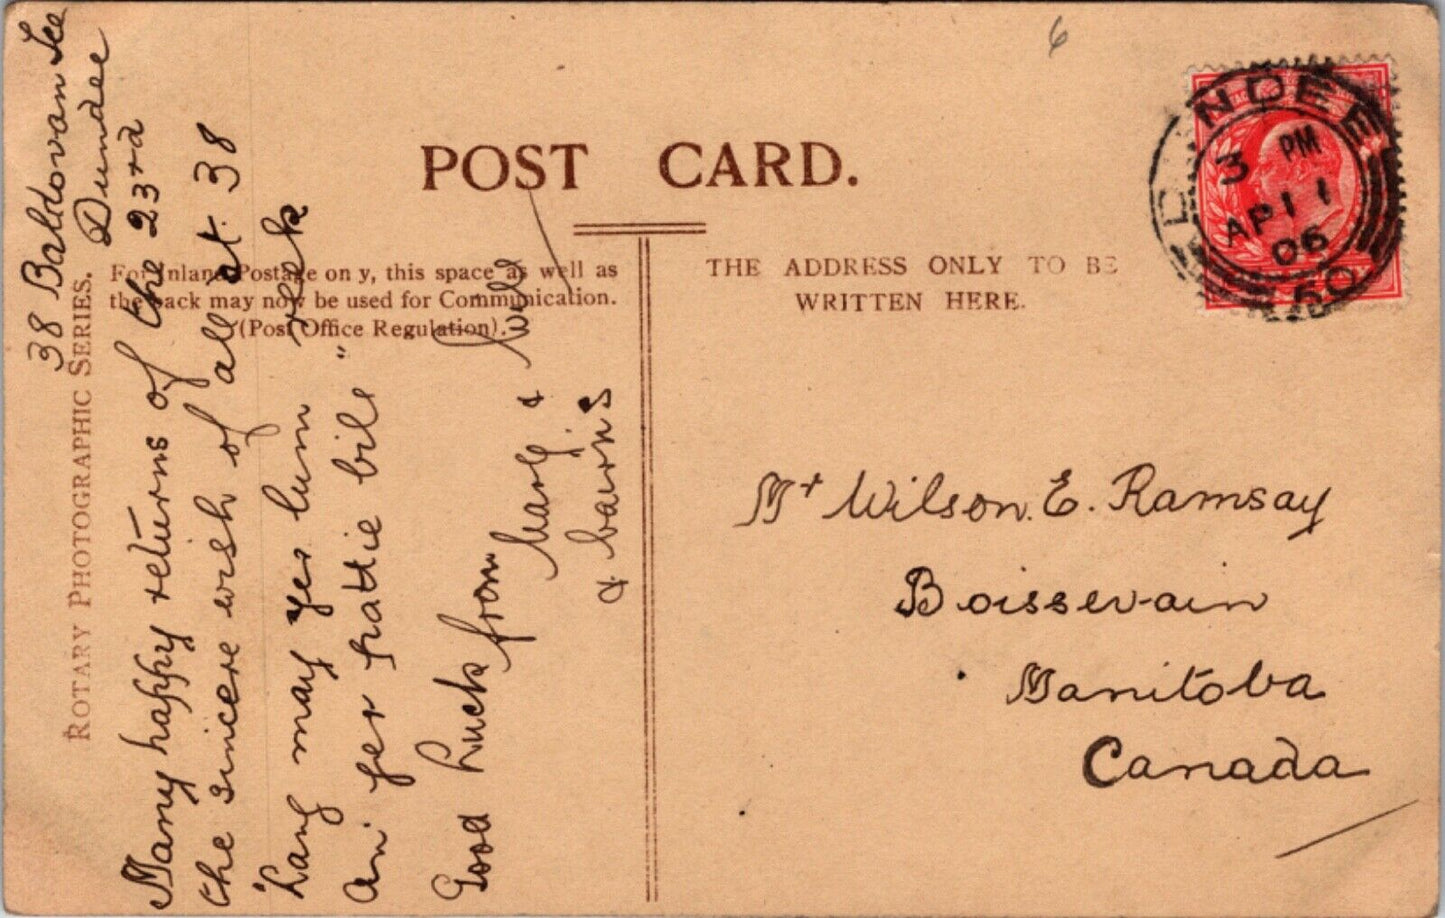 38 Baldovan Tce
Dundee
Many happy returns of the 23rd
the sincere wish of all at 38
"Lang may yer lum reek
An' yer pattie bile"
Good Luck from
Marg. & Will
& bairns
ROTARY PHOTOGRAPHIC SERIES.
POST CARD.
For Inland Postage only, this space as well as
the back may now be used for Communication.
(Post Office Regulation).
THE ADDRESS ONLY TO BE
WRITTEN HERE.
6
DUNDEE
3 PM
AP 11
06
50
Mr Wilson. E. Ramsay
Boissevain
Manitoba
Canada